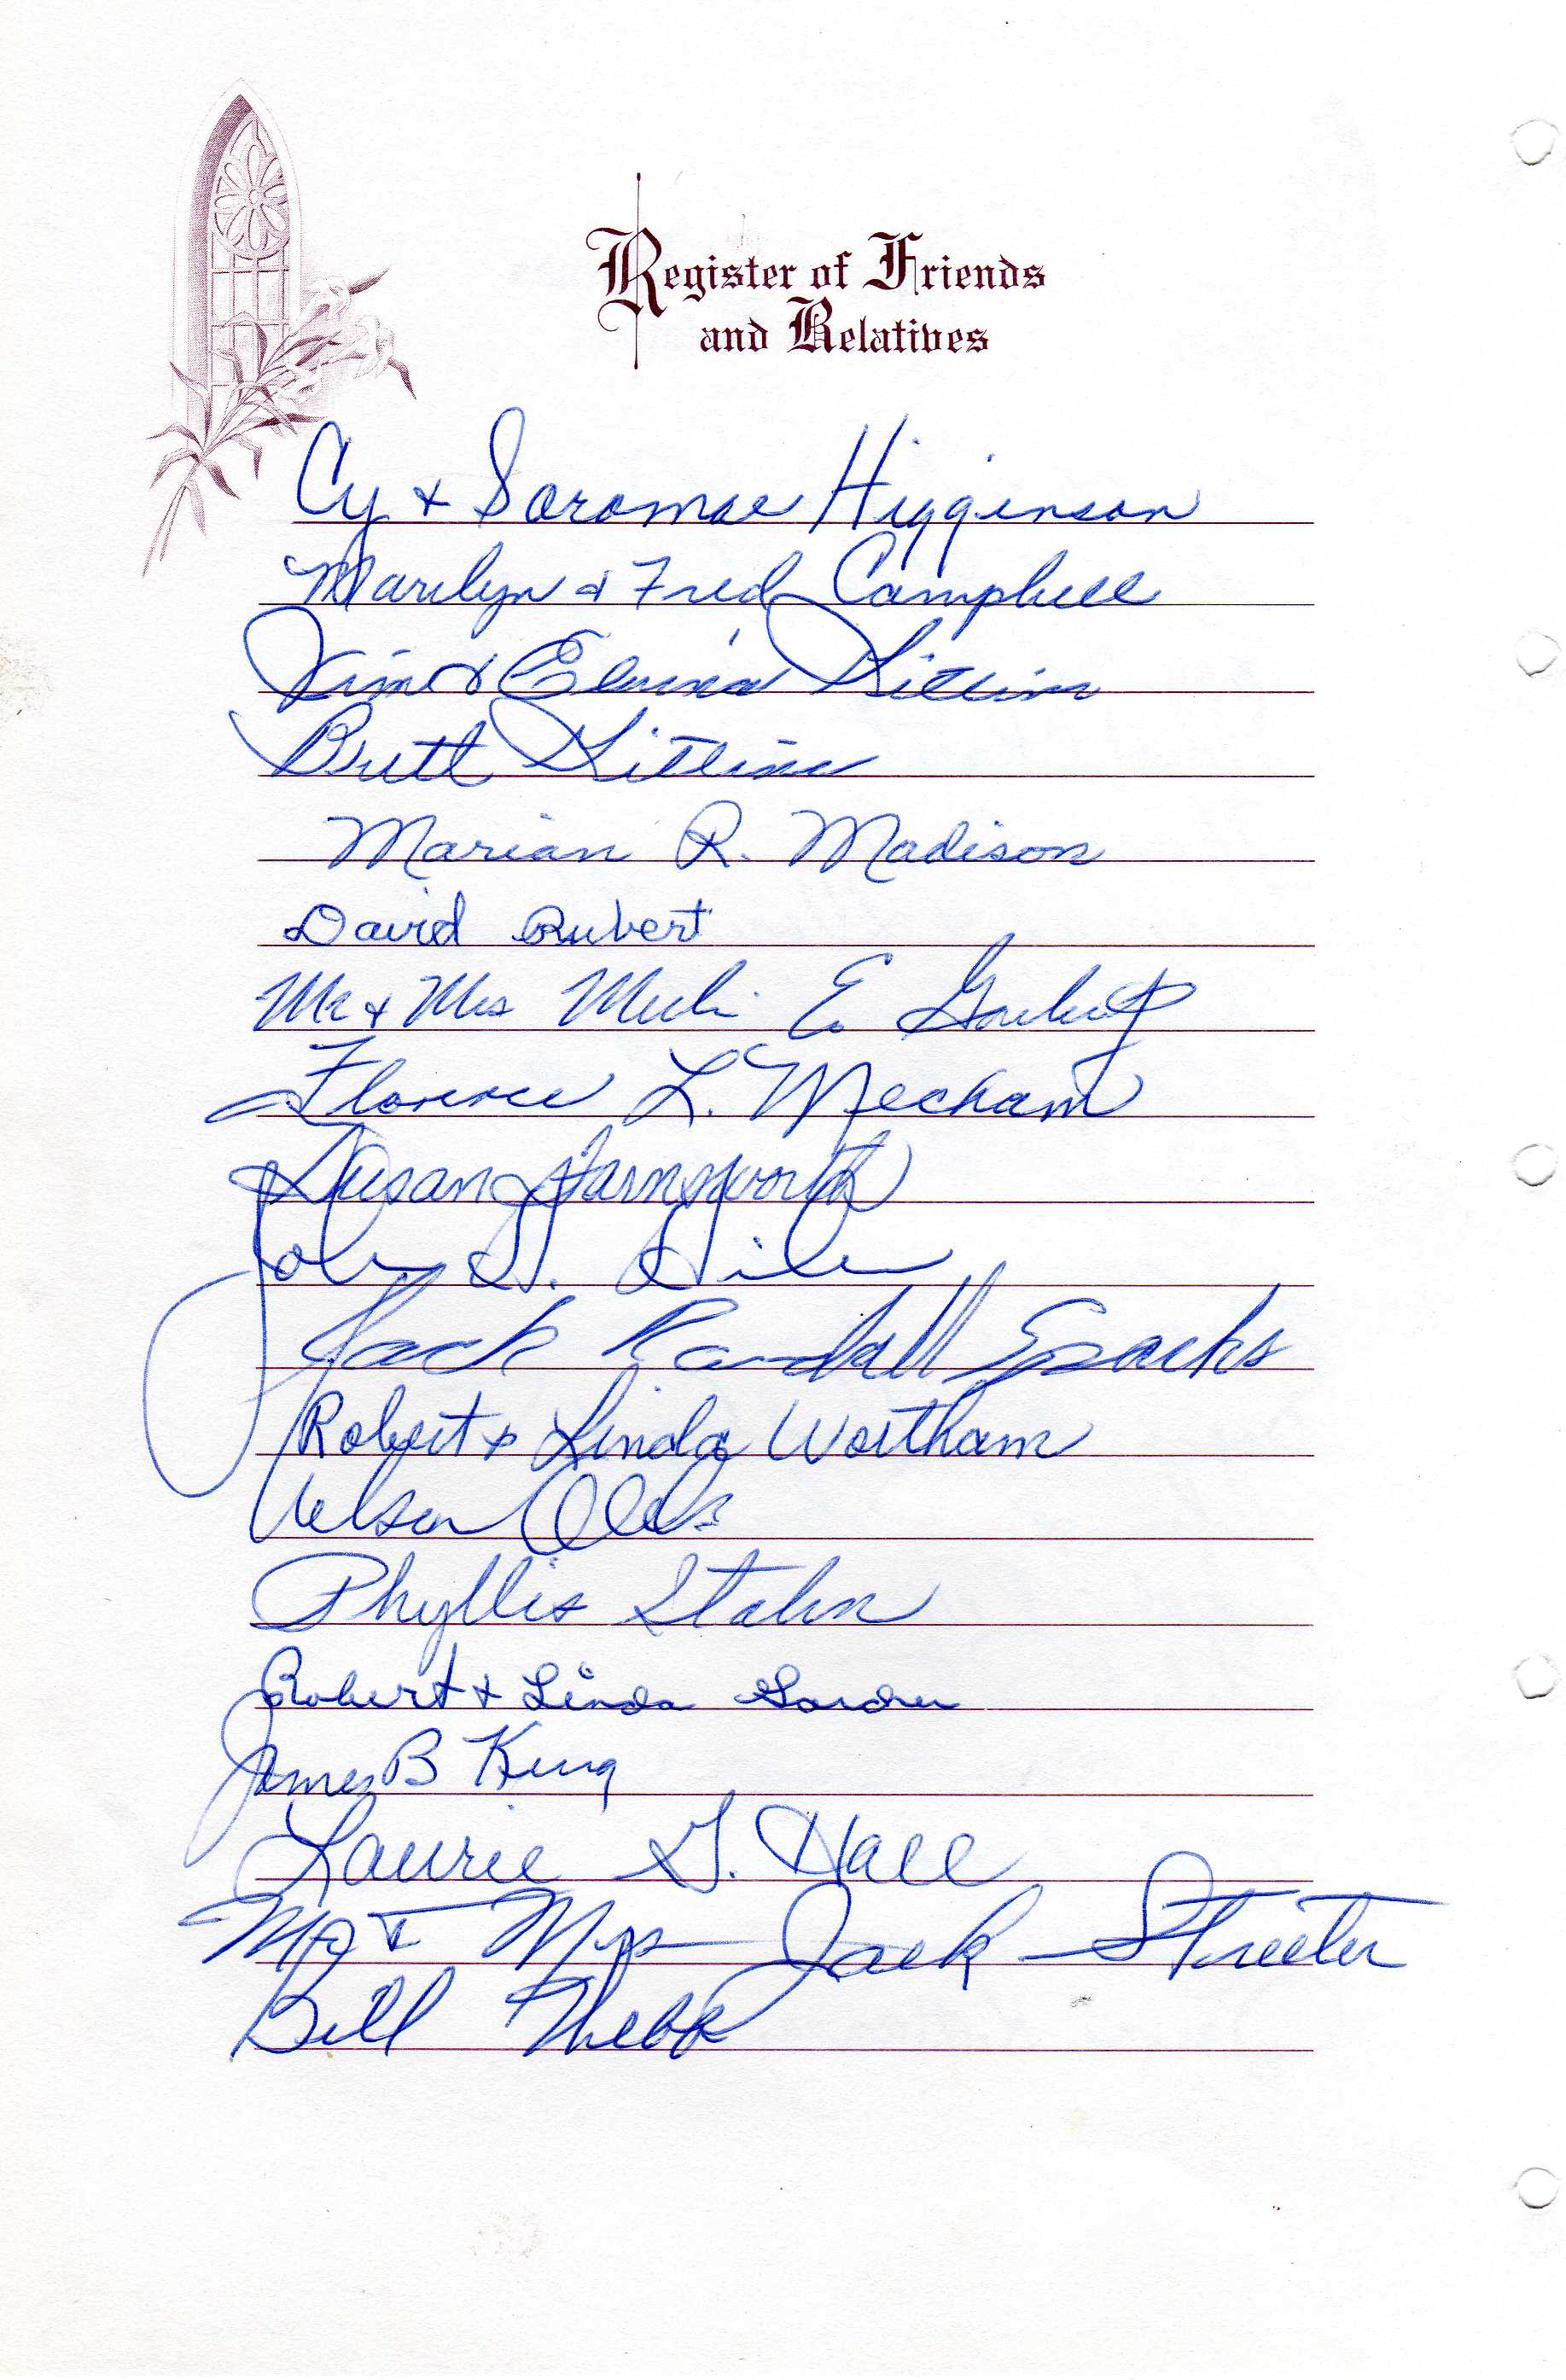 Register of Friends
and Relatives
Cy & Soromae Higginson
Marilyn & Fred Campbell
Jim & Kittim
Brett Kittim
Marian R. Madison
David Rubert
Mr & Mrs E
Florence L. Mecham
Susan Farnsworth
John
Jack Randall Sparks
Robert & Linda Wortham
Nelson
Phyllis Stahn
Robert & Linda
James B King
Laurie G. Hall
Mr & Mrs Jack Streeter
Bill Webb